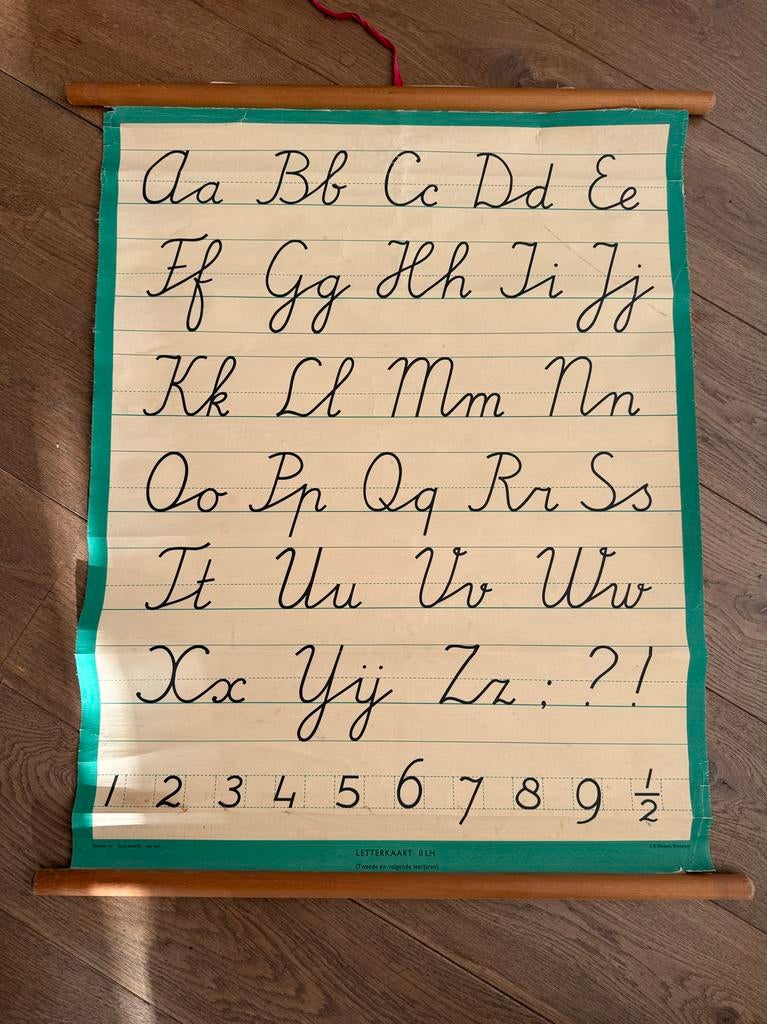 Aa Bb Cc Dd Ee
Ff Gg Hh Ii Jj
Kk Ll Mm Nn
Oo Pp Qq Rr Ss
Tt Uu Vv Ww
Xx Yij Zz ; ? !
1 2 3 4 5 6 7 8 9 ½
LETTERKAART II LH
(Tweede en volgende leerjaren)